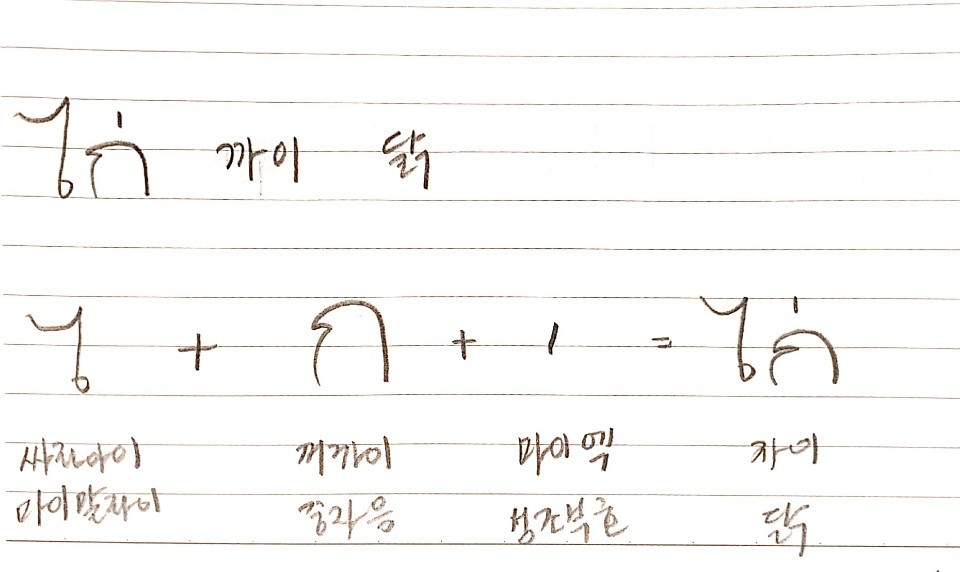 ไก่ 까이 닭
ไ + ก + ่ = ไก่
싸라아이 꺼까이 마이엑 까이
마이말라이 중자음 성조부호 닭